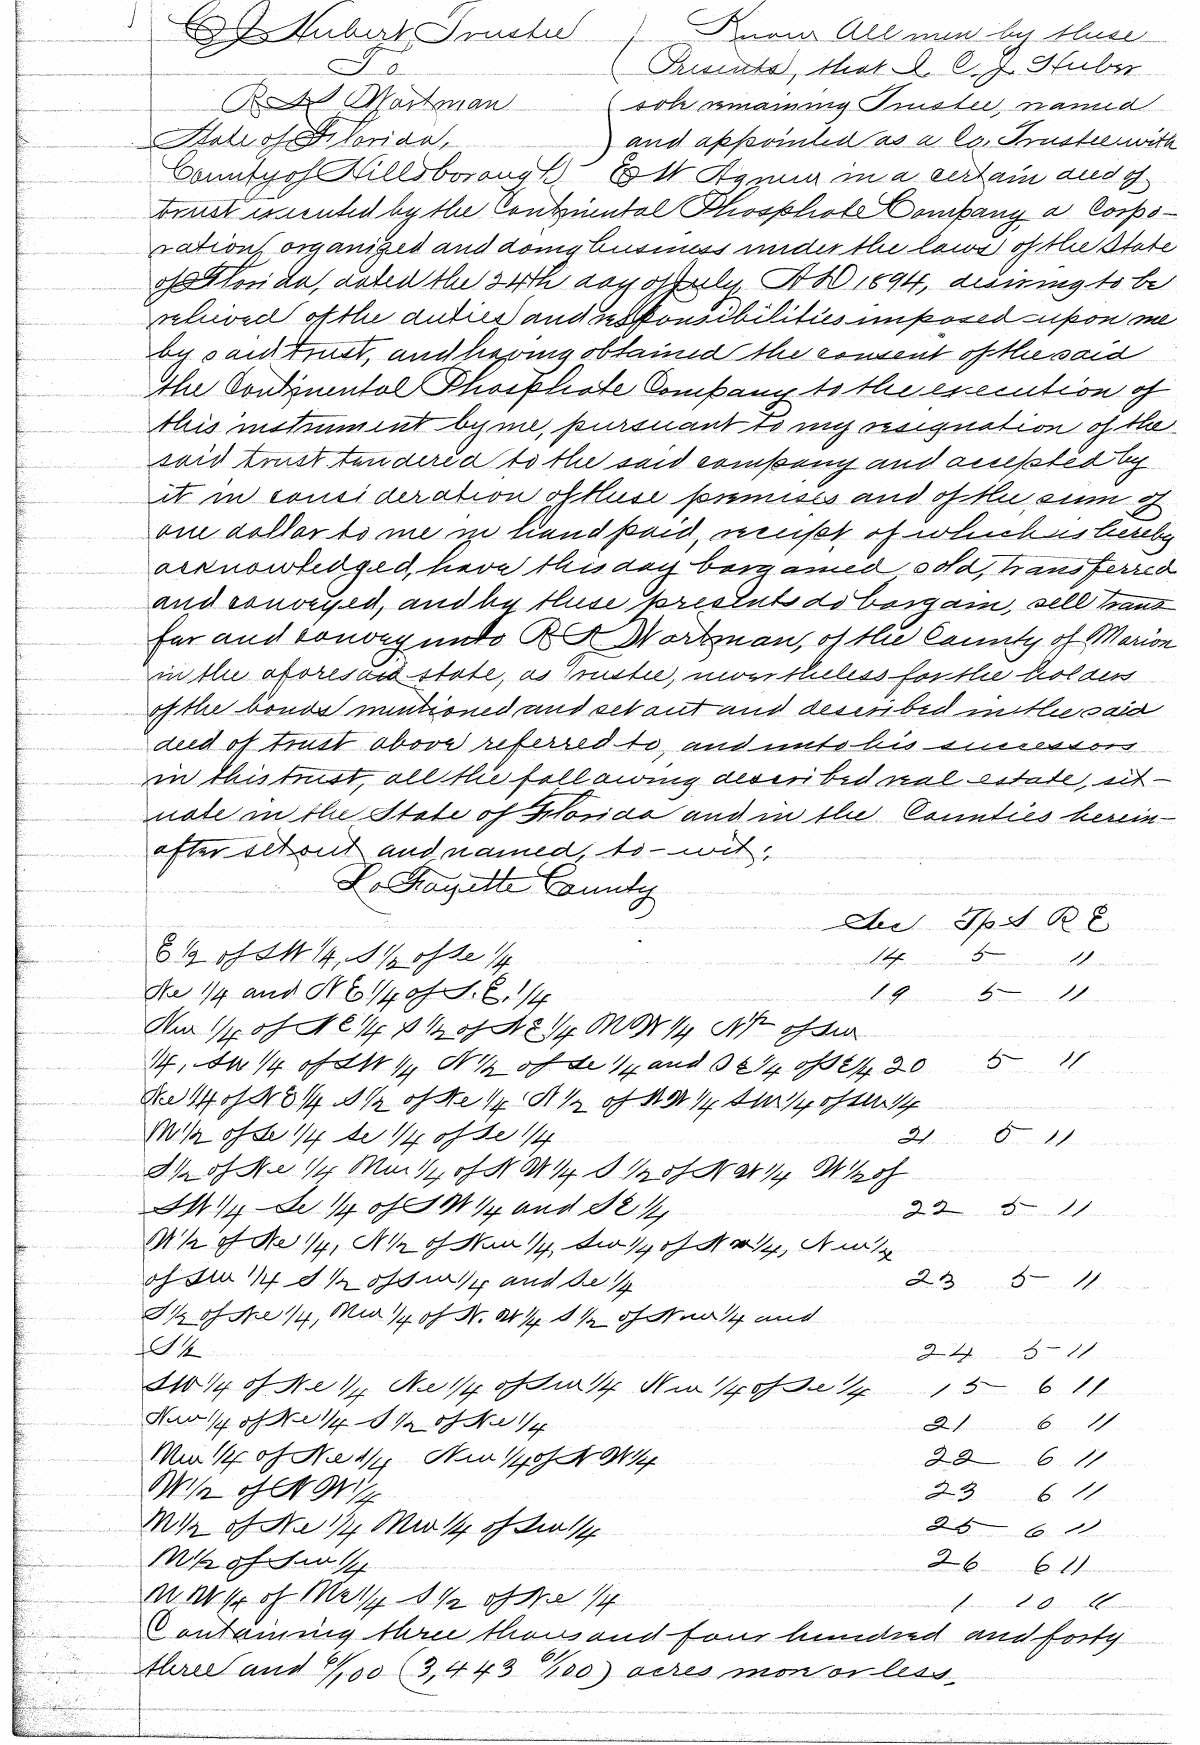 C J Huber, Trustee ) Know All men by these
To ( Presents, that I C. J. Huber
R A Wartman ( sole remaining Trustee, named
State of Florida, ) and appointed as a Co. Trustee with
County of Hillsborough) E W Agnew in a certain deed of
trust executed by the Continental Phosphate Company, a Corpo-
ration, organized and doing business under the laws of the State
of Florida, dated the 24th day of July, A D 1894, desiring to be
relieved of the duties and responsibilities imposed upon me
by said trust, and having obtained the consent of the said
the Continental Phosphate Company to the execution of
this instrument by me, pursuant to my resignation of the
said trust tendered to the said company and accepted by
it in consideration of these premises and of the sum of
one dollar to me in hand paid, receipt of which is hereby
acknowledged, have this day bargained, sold, transferred
and conveyed, and by these presents do bargain, sell trans
fer and convey unto R A Wartman, of the County of Marion
in the aforesaid state, as Trustee, nevertheless for the holders
of the bonds mentioned and set out and described in the said
deed of trust above referred to, and unto his successors
in this trust, all the following described real estate, sit-
uate in the State of Florida and in the Counties herein-
after set out and named, to-wit:
La Fayette County
Sec Tp S R E
E ½ of SW ¼, S ½ of Se ¼ 14 5 11
Ne ¼ and N E ¼ of S. E. ¼ 19 5 11
Nw ¼ of N E ¼ S ½ of N E ¼ N W ¼ N ½ of Sw
¼, Sw ¼ of SW ¼ N ½ of Se ¼ and S E ¼ of S E ¼ 20 5 11
Ne ¼ of N E ¼ S ½ of Ne ¼ N ½ of N W ¼ Sw ¼ of Sw ¼
N ½ of Se ¼ Se ¼ of Se ¼ 21 5 11
S ½ of Ne ¼ Nw ¼ of N W ¼ S ½ of N W ¼ W ½ of
SW ¼ Se ¼ of S W ¼ and S E ¼ 22 5 11
W ½ of Ne ¼, N ½ of Nw ¼, Sw ¼ of N w ¼, N w ¼
of Sw ¼ S ½ of Sw ¼ and Se ¼ 23 5 11
S ½ of Ne ¼, Nw ¼ of N. W ¼ S ½ of Nw ¼ and
S ½ 24 5 11
SW ¼ of Ne ¼ Ne ¼ of Sw ¼ Nw ¼ of Se ¼ 15 6 11
Nw ¼ of Ne ¼ S ½ of Ne ¼ 21 6 11
Nw ¼ of Ne ¼ Nw ¼ of N W ¼ 22 6 11
W ½ of N W ¼ 23 6 11
N ½ of Ne ¼ Nw ¼ of Sw ¼ 25 6 11
N ½ of Sw ¼ 26 6 11
N W ¼ of Ne ¼ S ½ of Ne ¼ 1 10 11
Containing three thousand four hundred and forty
three and 61/100 (3,443 61/100) acres more or less.